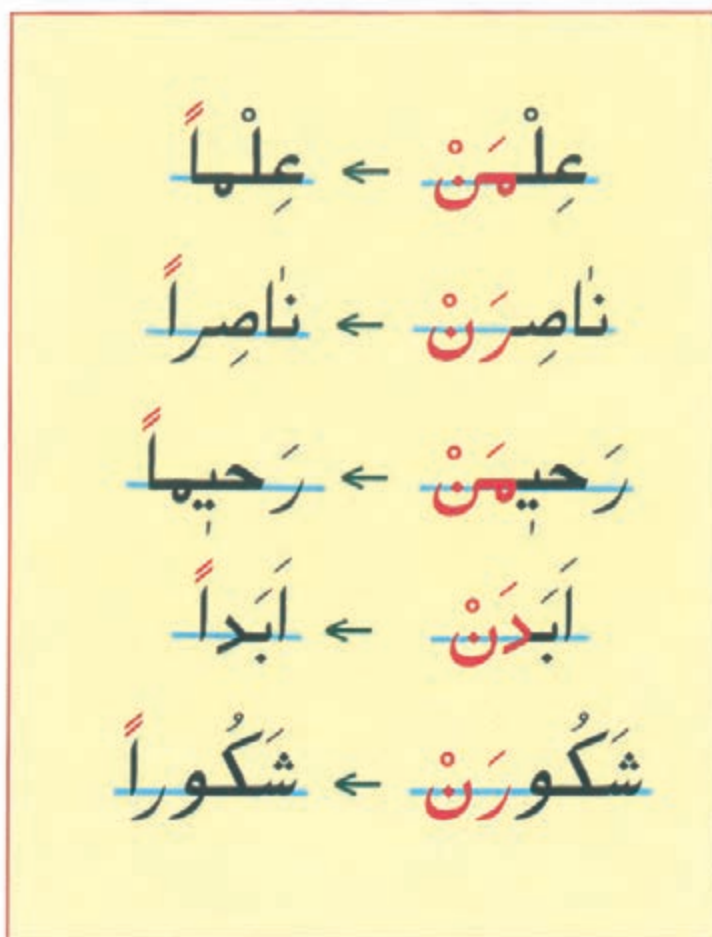 عِلْمَنْ ← عِلْماً
نٰاصِرَنْ ← نٰاصِراً
رَحيٖمَنْ ← رَحيٖماً
اَبَدَنْ ← اَبَداً
شَكُورَنْ ← شَكُوراً